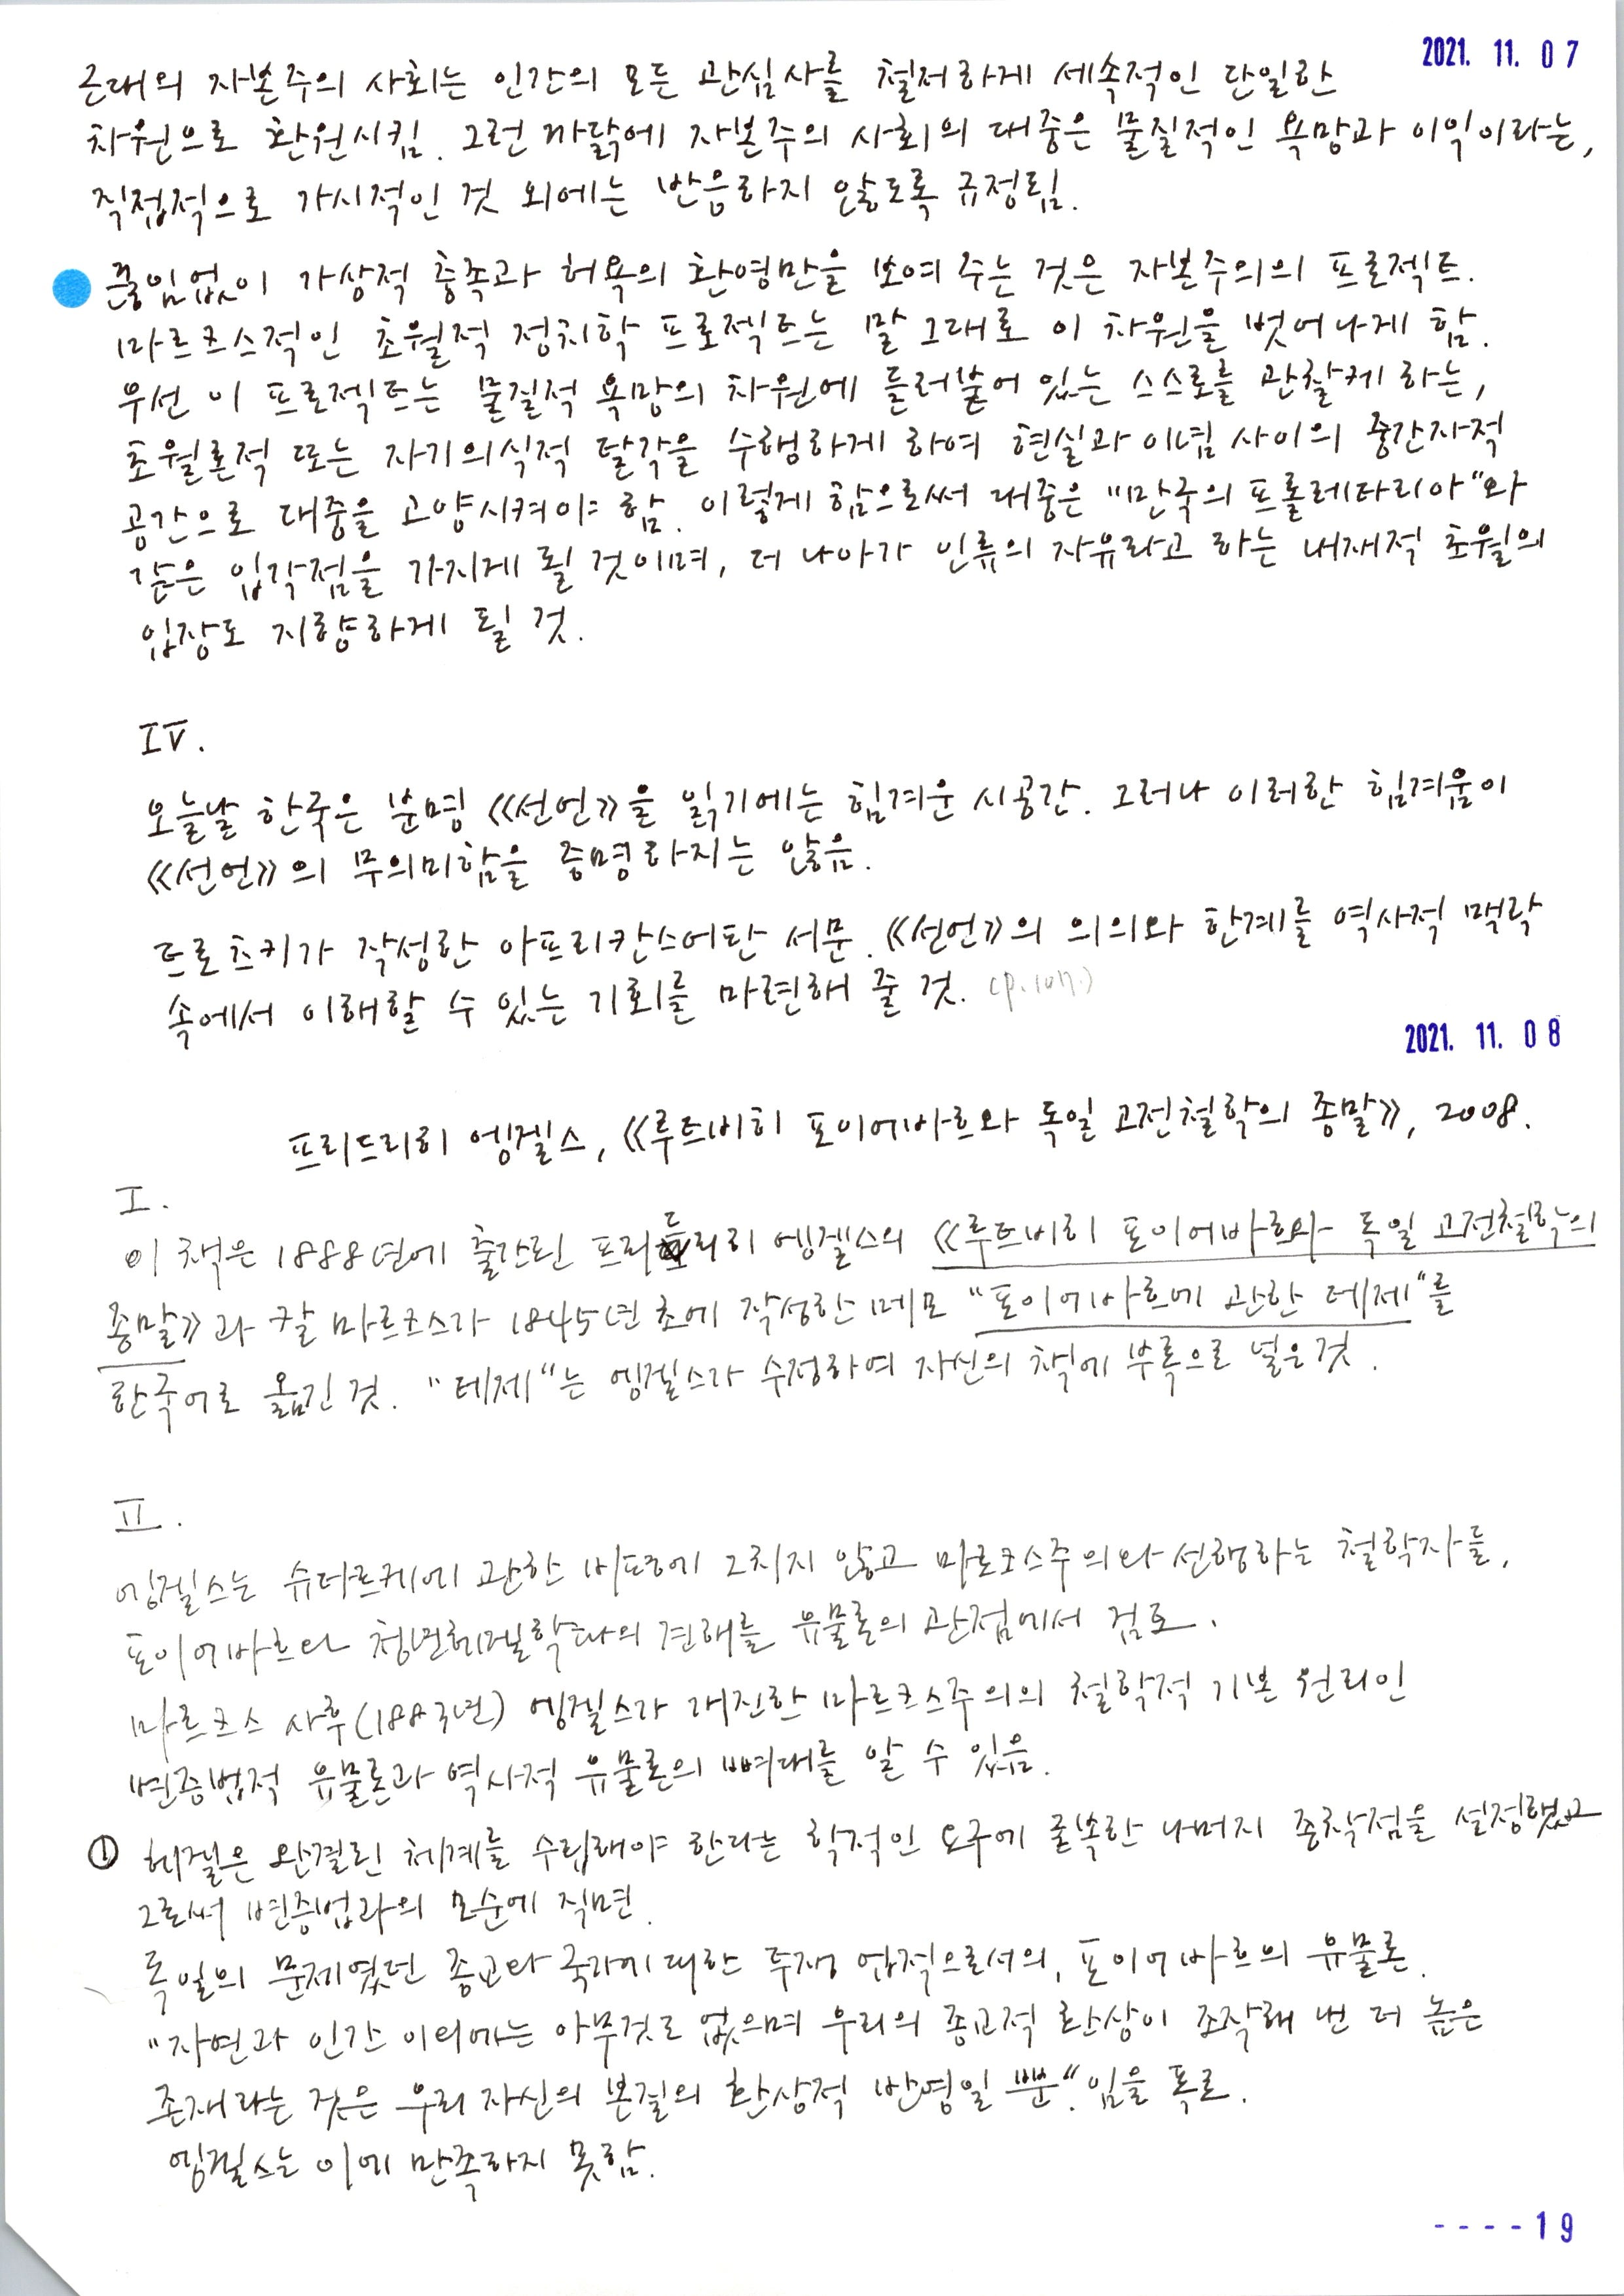 2021. 11. 07
근대의 자본주의 사회는 인간의 모든 관심사를 철저하게 세속적인 단일한
차원으로 환원시킴. 그런 까닭에 자본주의 사회의 대중은 물질적인 욕망과 이익이라는,
직접적으로 가시적인 것 외에는 반응하지 않도록 규정됨.
끊임없이 가상적 충족과 허욕의 환영만을 보여 주는 것은 자본주의의 프로젝트.
마르크스적인 초월적 정치학 프로젝트는 말 그대로 이 차원을 벗어나게 함.
우선 이 프로젝트는 물질적 욕망의 차원에 들러붙어 있는 스스로를 관찰케 하는,
초월론적 또는 자기의식적 탈각을 수행하게 하여 현실과 이념 사이의 중간자적
공간으로 대중을 고양시켜야 함. 이렇게 함으로써 대중은 "만국의 프롤레타리아"와
같은 입각점을 가지게 될 것이며, 더 나아가 인류의 자유라고 하는 내재적 초월의
입장도 지향하게 될 것.
IV.
오늘날 한국은 분명 《선언》을 읽기에는 힘겨운 시공간. 그러나 이러한 힘겨움이
《선언》의 무의미함을 증명하지는 않음.
트로츠키가 작성한 아프리칸스어판 서문. 《선언》의 의의와 한계를 역사적 맥락
속에서 이해할 수 있는 기회를 마련해 줄 것. (p.107.)
2021. 11. 08
프리드리히 엥겔스, 《루트비히 포이어바흐와 독일 고전철학의 종말》, 2008.
I.
이 책은 1888년에 출간된 프리드리히 엥겔스의 《루트비히 포이어바흐와 독일 고전철학의
종말》과 칼 마르크스가 1845년 초에 작성한 메모 "포이어바흐에 관한 테제"를
한국어로 옮긴 것. "테제"는 엥겔스가 수정하여 자신의 책에 부록으로 넣은 것.
II.
엥겔스는 슈타르케에 관한 비평에 그치지 않고 마르크스주의와 선행하는 철학자들,
포이어바흐나 청년헤겔학파의 견해를 유물론의 관점에서 검토.
마르크스 사후(1883년) 엥겔스가 개진한 마르크스주의의 철학적 기본 원리인
변증법적 유물론과 역사적 유물론의 뼈대를 알 수 있음.
① 헤겔은 완결된 체계를 수립해야 한다는 학적인 요구에 굴복한 나머지 종착점을 설정했고
그로써 변증법과의 모순에 직면.
독일의 문제였던 종교와 국가에 대한 투쟁 업적으로서의, 포이어바흐의 유물론.
"자연과 인간 이외에는 아무것도 없으며 우리의 종교적 환상이 조작해 낸 더 높은
존재라는 것은 우리 자신의 본질의 환상적 반영일 뿐."임을 폭로.
엥겔스는 이에 만족하지 못함.
----19